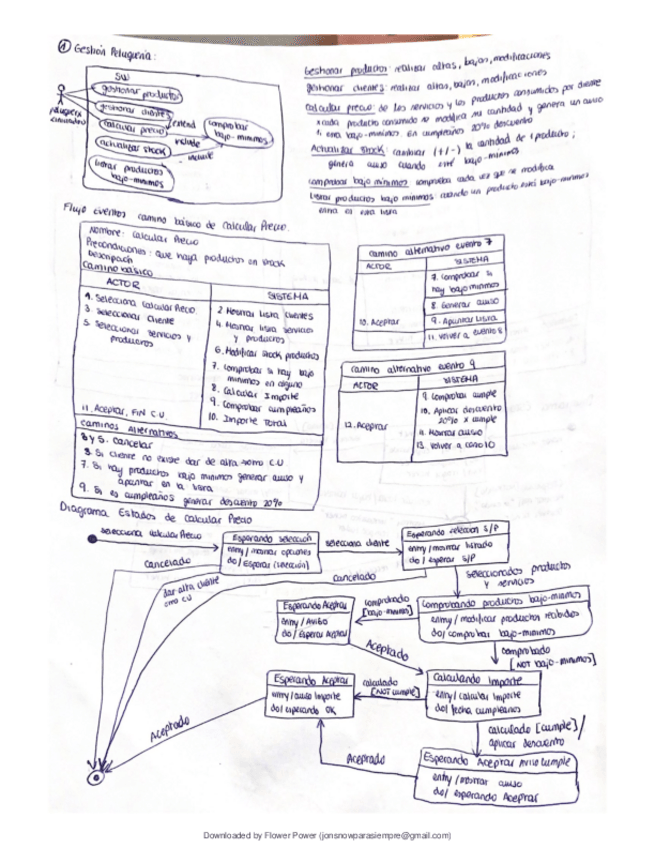 ① Gestión Peluquería:
SW
gestionar productos
gestionar clientes
calcular precio
extend
comprobar
bajo-mínimos
include
actualizar stock
include
listar productos
bajo-mínimos
peluquera
Gestionar productos: realizar altas, bajas, modificaciones
gestionar clientes: realizar altas, bajas, modificaciones
calcular precio: de los servicios y los productos consumidos por cliente
x cada producto consumido se modifica su cantidad y genera un aviso
si está bajo-mínimos. En cumpleaños 20% descuento
Actualizar stock: cambiar (+/-) la cantidad de 1 producto;
genera aviso cuando esté bajo-mínimos
comprobar bajo mínimos: comprueba cada vez que se modifica
listar productos bajo mínimos: cuando un producto esté bajo-mínimos
entra en esta lista
Flujo eventos camino básico de Calcular Precio.
Nombre: Calcular Precio
Precondiciones: que haya productos en stock
Descripción
Camino básico
ACTOR
SISTEMA
1. Selecciona Calcular Precio.
2. Mostrar lista clientes
3. Seleccionar cliente
4. Mostrar lista servicios
y productos
5. Seleccionar servicios y
productos
6. Modificar stock productos
7. Comprobar si hay bajo
mínimos en alguno
8. Calcular Importe
9. Comprobar cumpleaños
10. Importe Total
11. Aceptar, FIN C.U.
caminos alternativos
3 y 5. cancelar
3. Si cliente no existe dar de alta como C.U
7. Si hay productos bajo mínimos generar aviso y
apuntar en la lista
9. Si es cumpleaños generar descuento 20%
camino alternativo evento 7
ACTOR
SISTEMA
7. Comprobar si
hay bajo mínimos
8. Generar aviso
9. Apuntar Lista
10. Aceptar
11. Volver a evento 8
camino alternativo evento 9
ACTOR
SISTEMA
9. Comprobar cumple
10. Aplicar descuento
20% x cumple
11. Mostrar aviso
12. Aceptar
13. Volver a caso 10
Diagrama Estados de Calcular Precio
selecciona calcular Precio
Esperando selección
entry/mostrar opciones
do/Esperar (selección)
selecciona cliente
Esperando selección S/P
entry/mostrar listado
do/esperar S/P
cancelado
cancelado
dar alta cliente
como CU
seleccionados productos
y servicios
Comprobando productos bajo-mínimos
entry/modificar productos recibidos
do/comprobar bajo-mínimos
comprobado
[bajo-mínimos]
Esperando Aceptar
entry/Aviso
do/Esperar Aceptar
Aceptado
comprobado
[NOT bajo-mínimos]
Calculando importe
entry/calcular importe
do/fecha cumpleaños
calculado
[NOT cumple]
Esperando Aceptar
entry/aviso importe
do/esperando OK
Aceptado
calculado [cumple]/
aplicar descuento
Esperando Aceptar Aviso Cumple
entry/mostrar aviso
do/esperando Aceptar
Aceptado
Downloaded by Flower Power (jonsnowparasiempre@gmail.com)